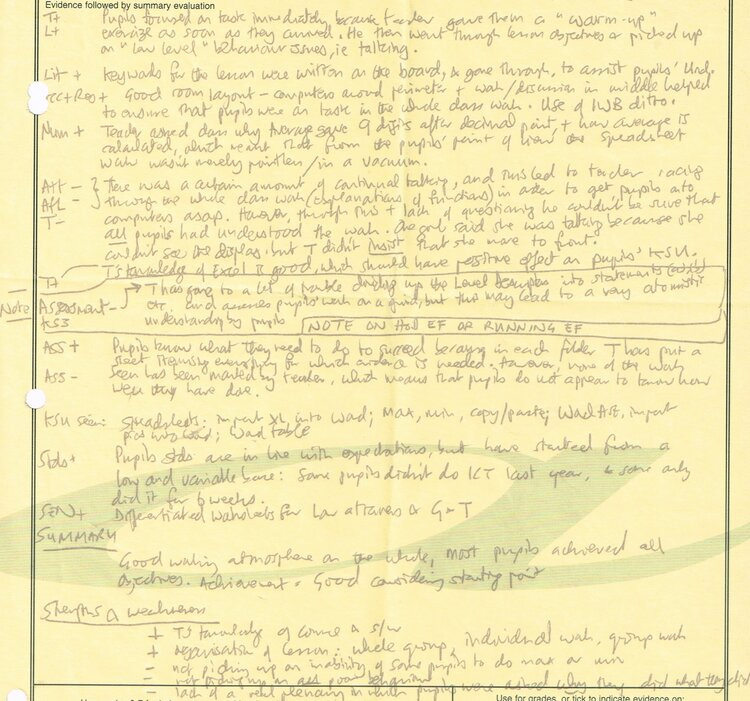 Evidence followed by summary evaluation
T+ Pupils focused on task immediately because teacher gave them a "warm-up"
L+ exercise as soon as they arrived. He then went through lesson objectives & picked up
on "low level" behaviour issues, ie talking.
Lit + Keywords for the lesson were written on the board, & gone through, to assist pupils' Und.
Acc+Res+ Good room layout - computers around perimeter + wah/discussion in middle helped
to ensure that pupils were on task in the whole class wah. Use of IWB ditto.
Num + Teacher asked class why Average gave 9 digits after decimal point, + how average is
calculated, which meant that from the pupils' point of view the spreadsheet
wah wasn't merely pointless/in a vacuum.
Att - } There was a certain amount of continual talking, and this led to teacher racing
AfL - } through the whole class wah (explanations of functions) in order to get pupils onto
T - computers asap. However, through this + lack of questioning he couldn't be sure that
all pupils had understood the wah. One girl said she was talking because she
couldn't see the display, but T didn't insist that she move to front.
T+ T's knowledge of Excel is good, which should have positive effect on pupils' KSU.
Note Assessment - → T has gone to a lot of trouble dividing up the Level Descriptors into statements
KS3 etc. and assesses pupils' work on a grid, but this may lead to a very atomistic
understanding by pupils NOTE ON HoD EF OR RUNNING EF
ASS + Pupils know what they need to do to succeed because in each folder T has put a
sheet itemising everything for which evidence is needed. However, none of the wah
Ass - seen has been marked by teacher, which means that pupils do not appear to know how
well they have done.
KSU seen: Spreadsheets: import XL into Word; Max, min, copy/paste; WordArt, import
pics into Word; Word table
Stds + Pupils' stds are in line with expectations, but have started from a
low and variable base: Some pupils didn't do ICT last year, & some only
did it for 6 weeks.
SEN + Differentiated worksheets for Low attainers & G+T
SUMMARY
Good working atmosphere on the whole, most pupils achieved all
objectives. Achievement = Good considering starting point
Strengths & weaknesses
+ T's knowledge of course & s/w
+ organisation of lesson: whole group, individual wah, group wah
- not picking up on inability of some pupils to do max or min
- not picking up on all poor behaviour
- lack of a real plenary in which pupils were asked why they did what they did
Use for grades, or tick to indicate evidence on: